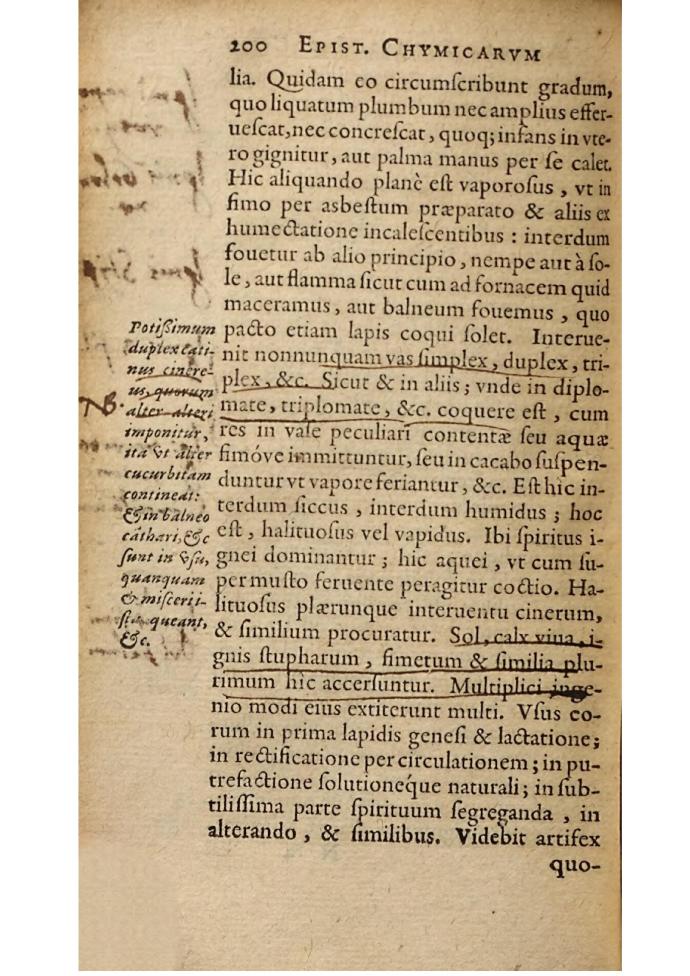 200 EPIST. CHYMICARVM
lia. Quidam eo circumſcribunt gradum,
quo liquatum plumbum nec amplius effer-
ueſcat, nec concreſcat, quoq; infans in vte-
ro gignitur, aut palma manus per ſe calet.
Hic aliquando planè eſt vaporoſus, vt in
fimo per asbeſtum præparato & aliis ex
humectatione incaleſcentibus : interdum
fouetur ab alio principio, nempe aut à ſo-
le, aut flamma ſicut cum ad fornacem quid
maceramus, aut balneum fouemus, quo
pacto etiam lapis coqui ſolet. Interue-
nit nonnunquam vas ſimplex, duplex, tri-
plex, &c. Sicut & in aliis; vnde in diplo-
mate, triplomate, &c. coquere eſt, cum
res in vaſe peculiari contentæ ſeu aquæ
fimóve immittuntur, ſeu in cacabo ſuſpen-
duntur vt vapore feriantur, &c. Eſt hic in-
terdum ſiccus, interdum humidus; hoc
eſt, halituoſus vel vapidus. Ibi ſpiritus i-
gnei dominantur; hic aquei, vt cum ſu-
per muſto feruente peragitur coctio. Ha-
lituoſus plærunque interuentu cinerum,
& ſimilium procuratur. Sol, calx viua, i-
gnis ſtupharum, fimetum & ſimilia plu-
rimum hic accerſuntur. Multiplici inge-
nio modi eius extiterunt multi. Vſus eo-
rum in prima lapidis geneſi & lactatione;
in rectificatione per circulationem; in pu-
trefactione ſolutioneq́ue naturali; in ſub-
tiliſſima parte ſpirituum ſegreganda, in
alterando, & ſimilibus. Videbit artifex
quo-
Potiſſimum
duplex cati-
nus cinere-
us, quorum
alter alteri
imponitur,
ita vt alter
cucurbitam
contineat:
& in balneo
cathari, &c
ſunt in vſu,
quanquam
& miſceri i-
ſta queant,
&c.
NB.